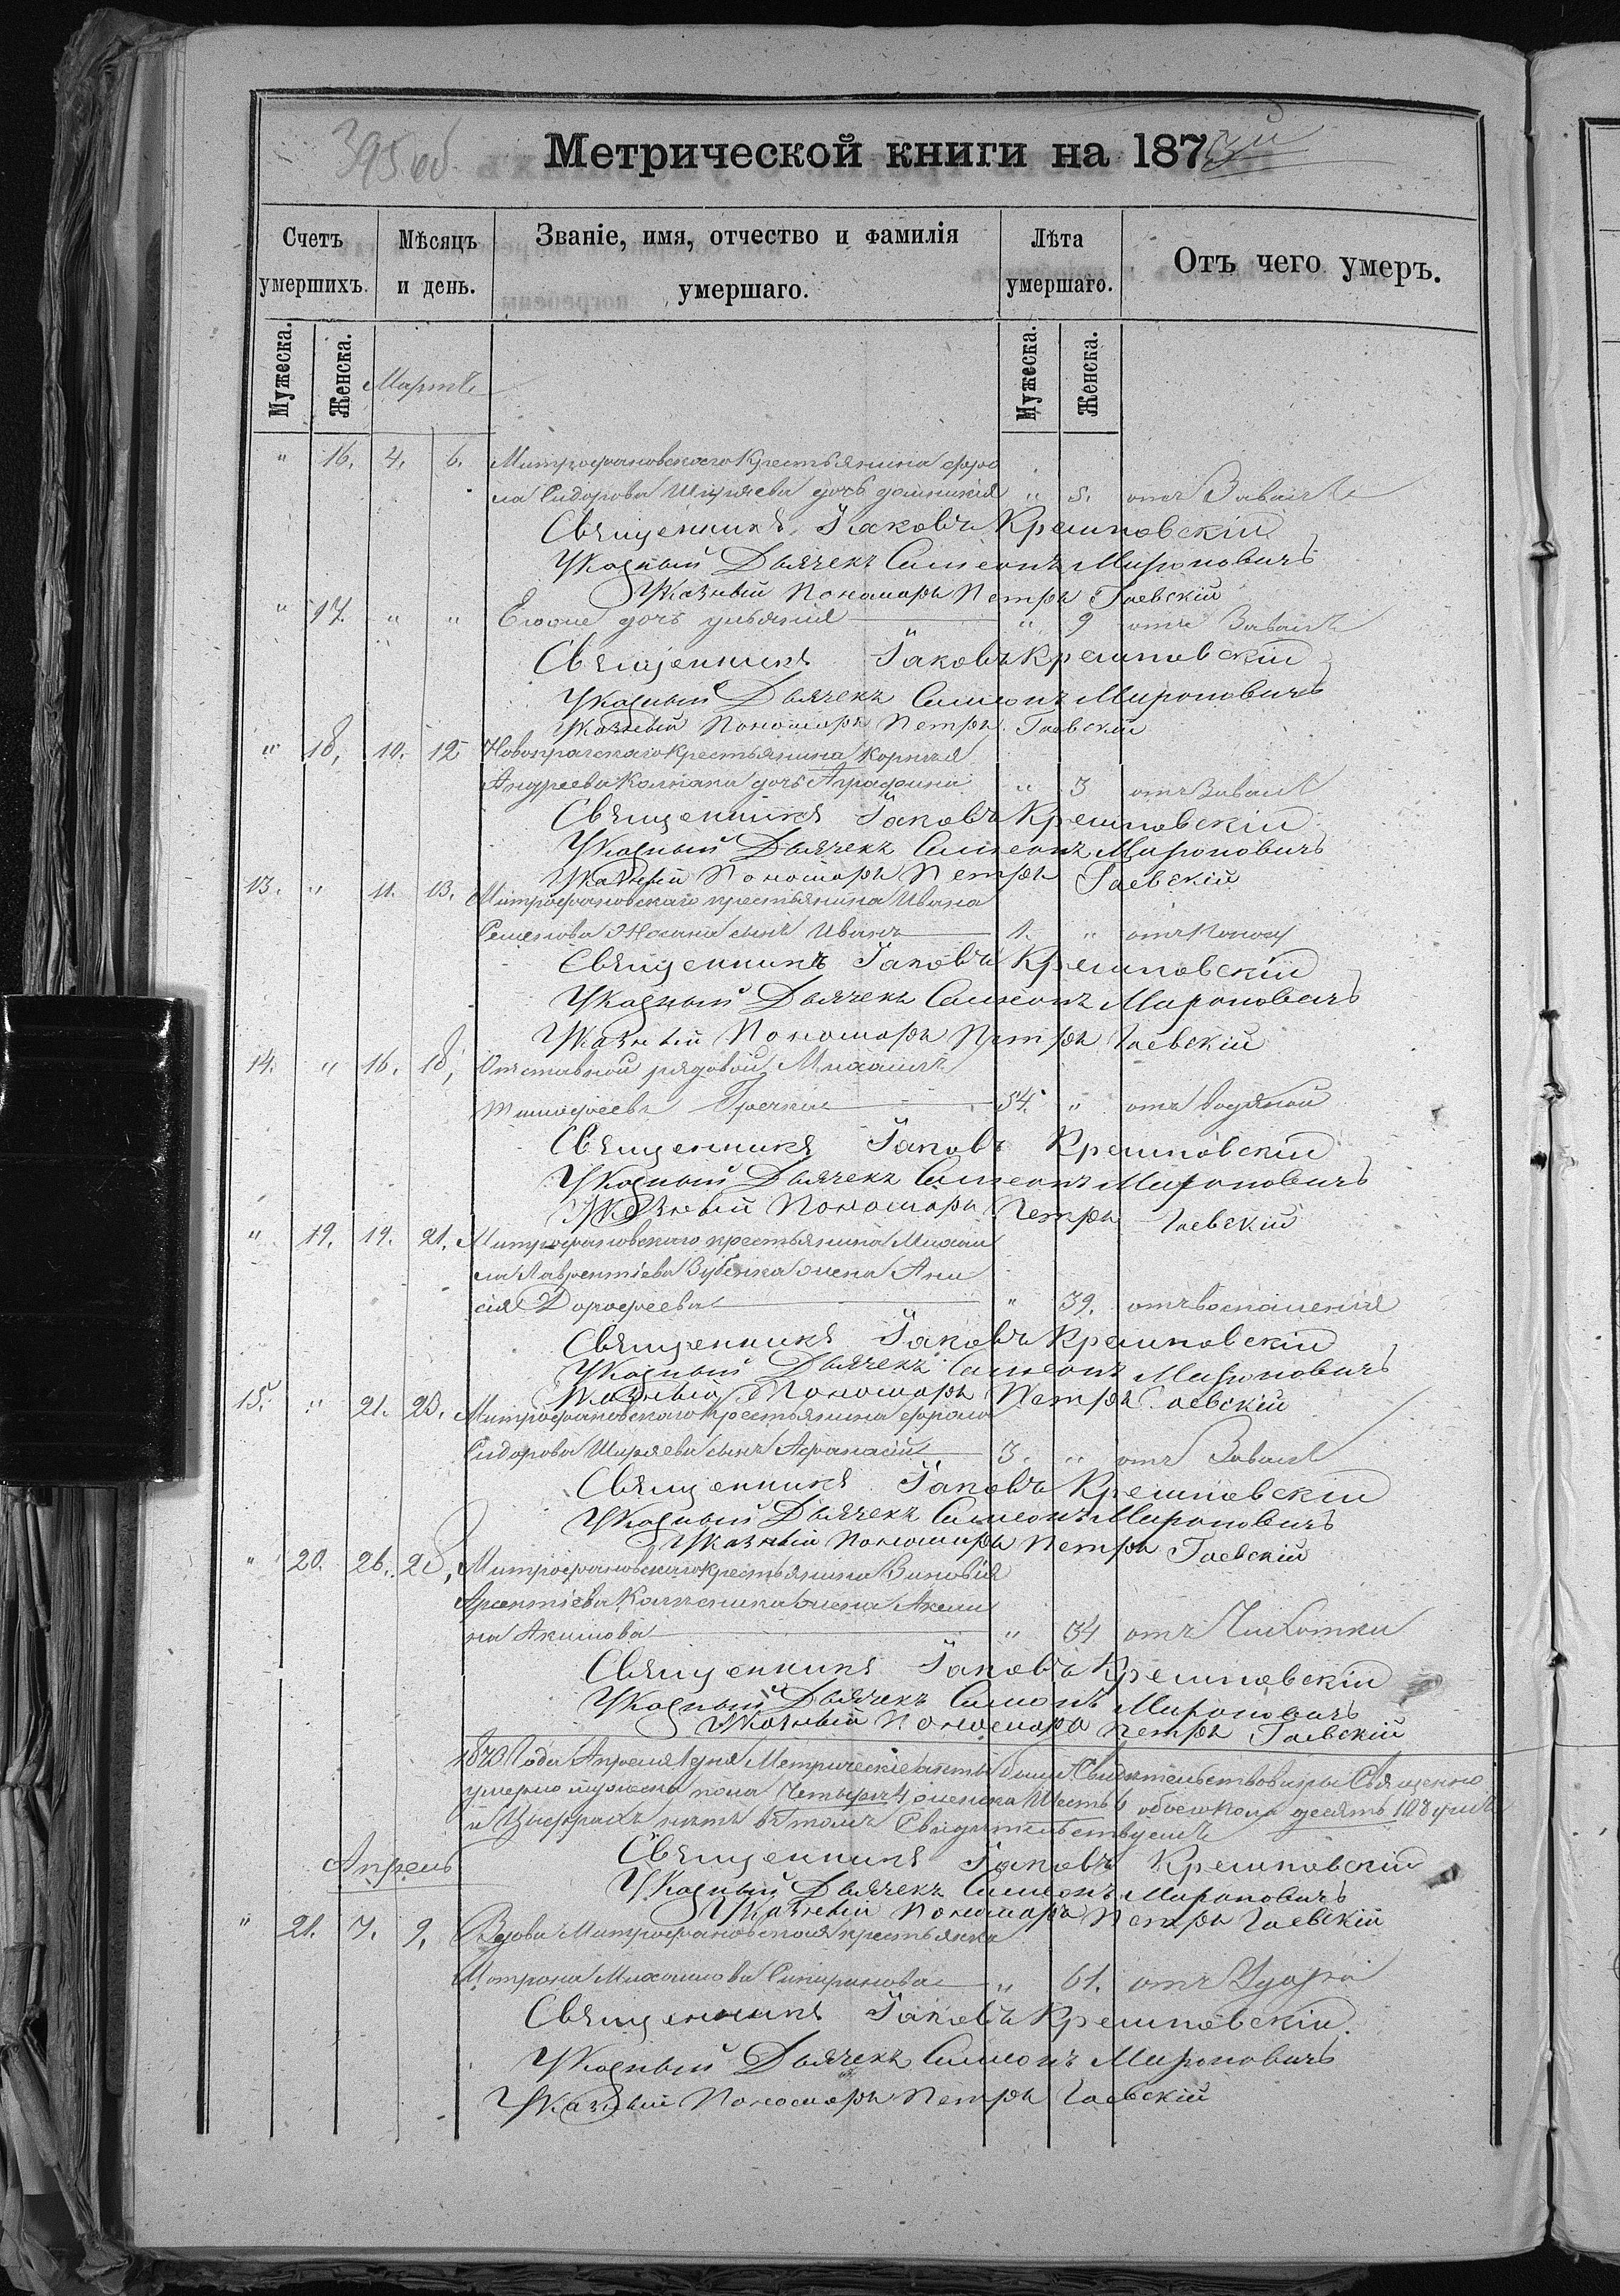 395 об
Метрической книги на 1873й
Счетъ умершихъ.
Мѣсяцъ и день.
Званіе, имя, отчество и фамилія умершаго.
Лѣта умершаго.
Отъ чего умеръ.
Мужеска.
Женска.
Мужеска.
Женска.
Мартъ
" 16. 4. 6. Митрофановскаго Крестьянина Фро
ла Сидорова Ширяева дочь " 5. отъ
Священникъ Іаковъ Кремповскій
Указный Дьячекъ Симеонъ Мироновичъ
Указный Пономарь Петръ Гаевскій
" 17. " " Егоже дочь Ульянія " 9 отъ
Священникъ Іаковъ Кремповскій
Указный Дьячекъ Симеонъ Мироновичъ
Указный Пономарь Петръ Гаевскій
" 18, 10. 12 Новопражскаго Крестьянина Корнилія
Андреева дочь Аграфина " 3 отъ
Священникъ Іаковъ Кремповскій
Указный Дьячекъ Симеонъ Мироновичъ
Указный Пономарь Петръ Гаевскій
13. " 11. 13. Митрофановскаго крестьянина Ивана
Семенова сынъ Иванъ 1. " отъ
Священникъ Іаковъ Кремповскій
Указный Дьячекъ Симеонъ Мироновичъ
Указный Пономарь Петръ Гаевскій
14. " 16. 18, Отставной рядовой Михаилъ
Тимофеевъ 54. " отъ водяной
Священникъ Іаковъ Кремповскій
Указный Дьячекъ Симеонъ Мироновичъ
Указный Пономарь Петръ Гаевскій
" 19. 19. 21. Митрофановскаго крестьянина Михаи
ла Лаврентіева Зубенка жена Ани
сія Дорофеева " 39. отъ воспаленія
Священникъ Іаковъ Кремповскій
Указный Дьячекъ Симеонъ Мироновичъ
Указный Пономарь Петръ Гаевскій
15. " 21. 23. Митрофановскаго Крестьянина Фрола
Сидорова Ширяева сынъ Афанасій 3. " отъ
Священникъ Іаковъ Кремповскій
Указный Дьячекъ Симеонъ Мироновичъ
Указный Пономарь Петръ Гаевскій
" 20. 26. 28, Митрофановскаго Крестьянина Зиновія
Арсентіева жена Акели
на Акимова " 34 отъ Чихотки
Священникъ Іаковъ Кремповскій
Указный Дьячекъ Симеонъ Мироновичъ
Указный Пономарь Петръ Гаевскій
1873 Года Апреля 1 дня Метрическіе акты были Свидетельствованы Священно
умерло мужеска пола Четыре 4 женска Шесть 6 обоего пола десять 10
и нетъ в томъ Свидетельствуемъ
Священникъ Іаковъ Кремповскій
Указный Дьячекъ Симеонъ Мироновичъ
Указный Пономарь Петръ Гаевскій
Апрель
" 21. 7. 9. Вдова Митрофановская крестьянка
Матрона Михаилова " 61. отъ Удара
Священникъ Іаковъ Кремповскій
Указный Дьячекъ Симеонъ Мироновичъ
Указный Пономарь Петръ Гаевскій